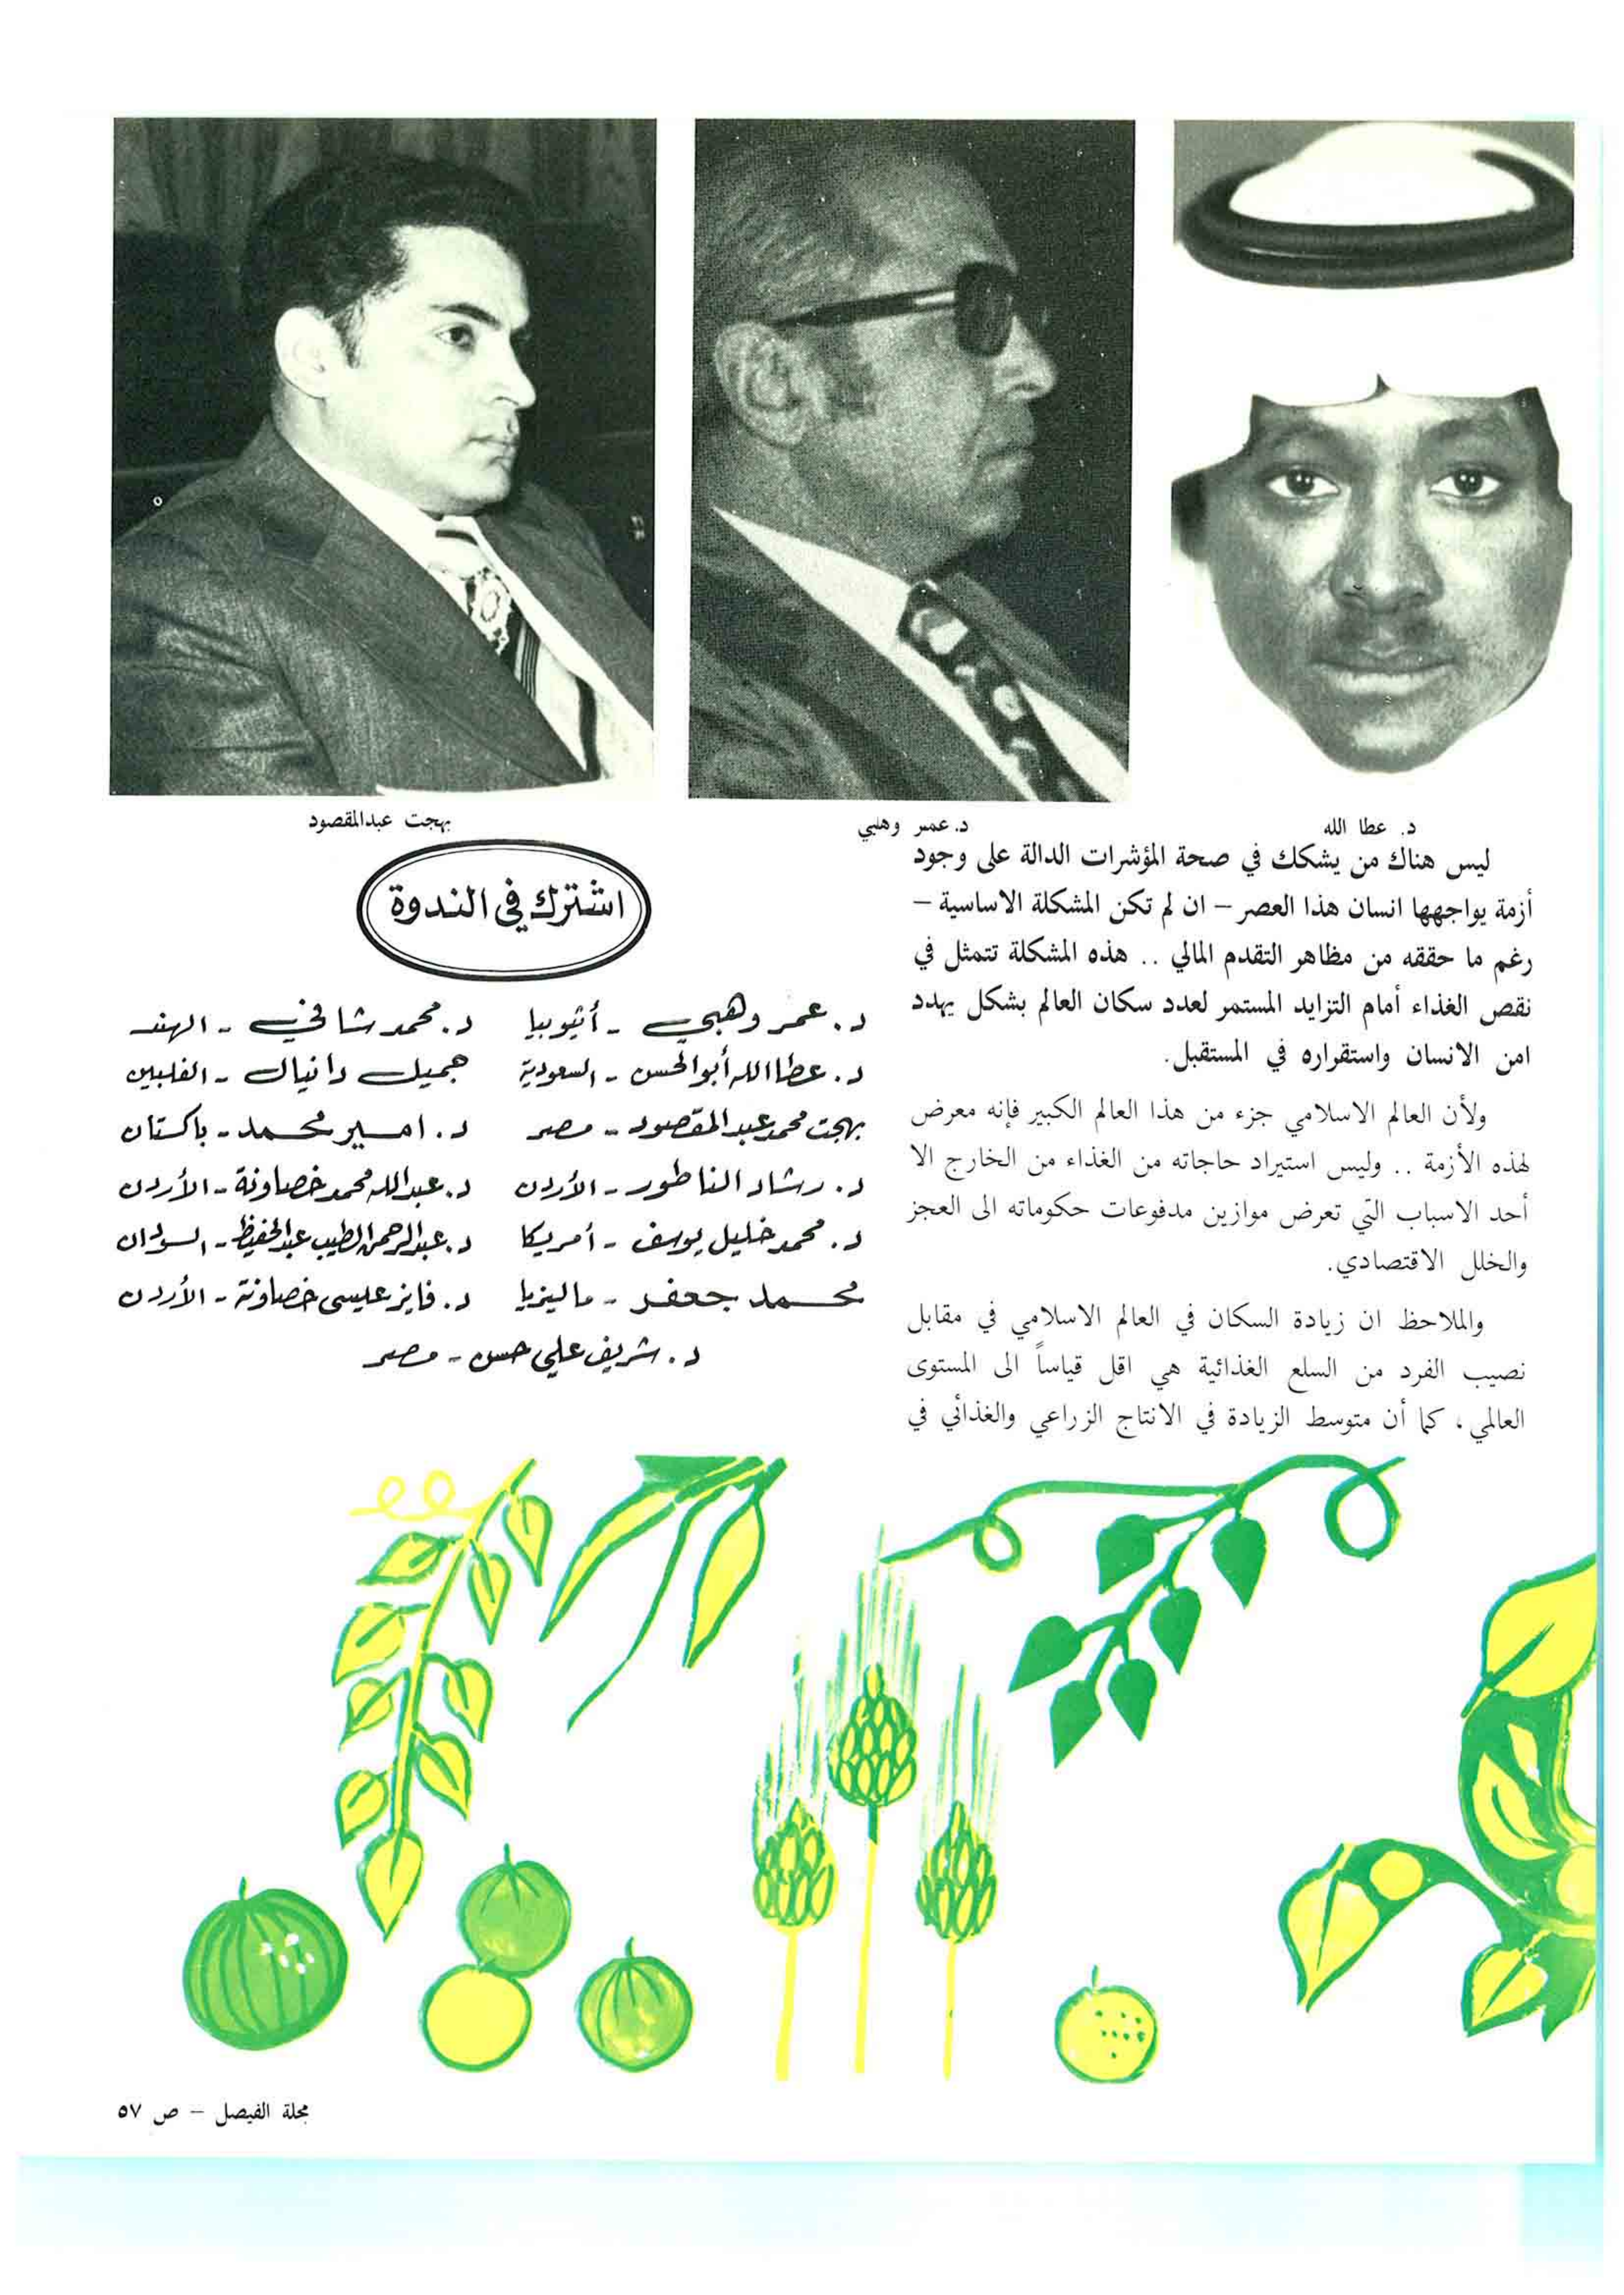 د. عطا الله
د. عمر وهبي
بهجت عبدالمقصود
ليس هناك من يشكك في صحة المؤشرات الدالة على وجود
أزمة يواجهها انسان هذا العصر – ان لم تكن المشكلة الاساسية –
رغم ما حققه من مظاهر التقدم المالي .. هذه المشكلة تتمثل في
نقص الغذاء أمام التزايد المستمر لعدد سكان العالم بشكل يهدد
امن الانسان واستقراره في المستقبل.
ولأن العالم الاسلامي جزء من هذا العالم الكبير فإنه معرض
لهذه الأزمة .. وليس استيراد حاجاته من الغذاء من الخارج الا
أحد الاسباب التي تعرض موازين مدفوعات حكوماته الى العجز
والخلل الاقتصادي.
والملاحظ ان زيادة السكان في العالم الاسلامي في مقابل
نصيب الفرد من السلع الغذائية هي اقل قياساً الى المستوى
العالمي ، كما أن متوسط الزيادة في الانتاج الزراعي والغذائي في
اشترك في الندوة
د. عمر وهبي - أثيوبيا
د. محمد شافي - الهند
د. عطا الله أبو الحسن - السعودية
جميل دانيال - الفلبين
بهجت محمد عبد المقصود - مصر
د. امير محمد - باكستان
د. رشاد الناطور - الأردن
د. عبدالله محمد خصاونة - الأردن
د. محمد خليل يوسف - أمريكا
د. عبدالرحمن الطيب عبدالحفيظ - السودان
محمد جعفر - ماليزيا
د. فايز عليسى خصاونة - الأردن
د. شريف علي حسن - مصر
مجلة الفيصل – ص ٥٧